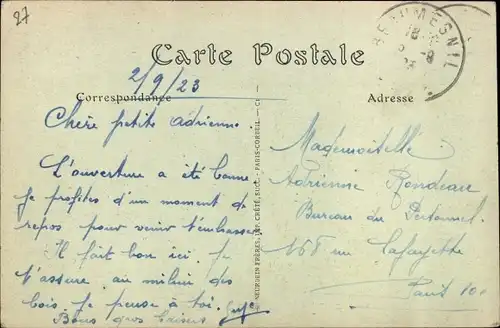 27
BEAUMESNIL
Carte Postale
2/9/23
Correspondance
Adresse
Chère petite Adrienne.
L'ouverture a été bonne
Je profites d'un moment de
repos pour venir t'embrasser
Il fait bon ici. Je
t'assure. au milieu des
bois. Je pense à toi.
Bons gros baisers
NEURDEIN FRÈRES, IMP. CRÉTÉ, SUCC. - PARIS-CORBEIL
Mademoiselle
Adrienne Rondeau
Bureau du Personnel
rue Lafayette
Paris 10e